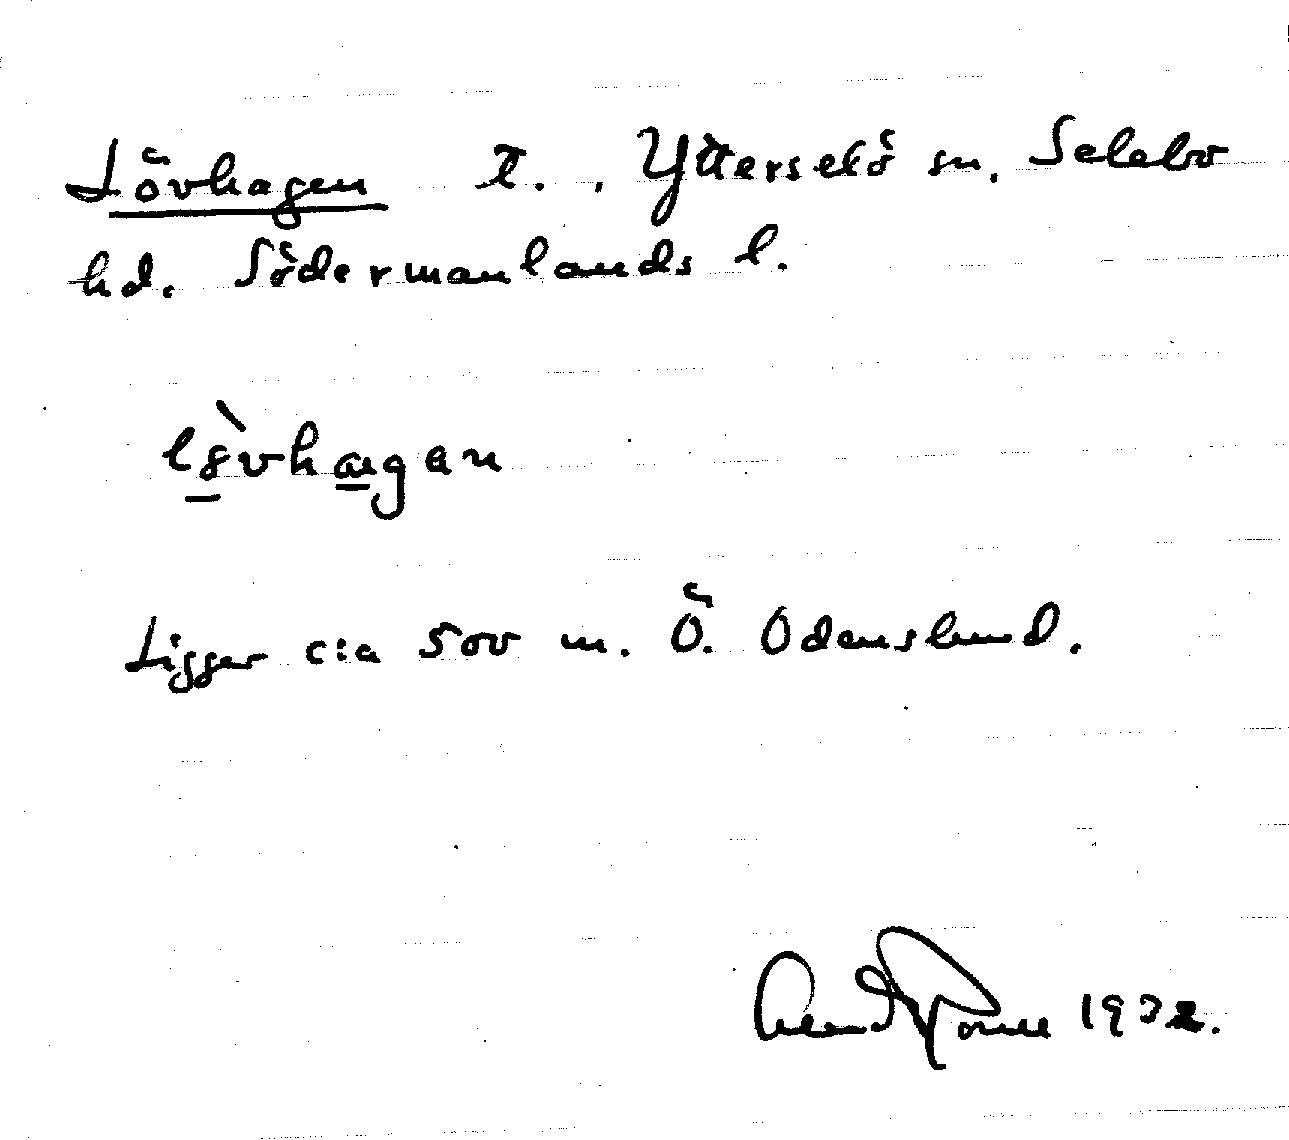 Lövhagen t., Ytterselö sn. Selebo
hd. Södermanlands l.
Ligger c:a 500 m. Ö. Odenslund.
1932.